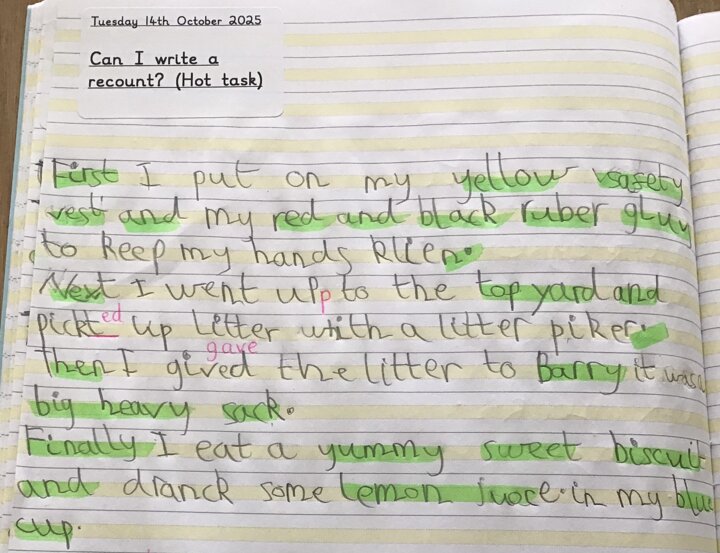 Tuesday 14th October 2025
Can I write a
recount? (Hot task)
First I put on my yellow safety
vest and my red and black ruber gluv
to keep my hands klien.
Next I went up p to the top yard and
ed
pickt up litter with a litter piker.
gave
Then I gived the litter to Barry it was a
big heavy sack.
Finally I eat a yummy sweet biscuit
and dranck some lemon juoce. in my blue
cup.